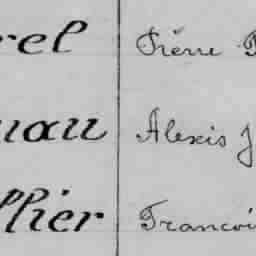 rel Pierre
uau Alexis J
llier Francois